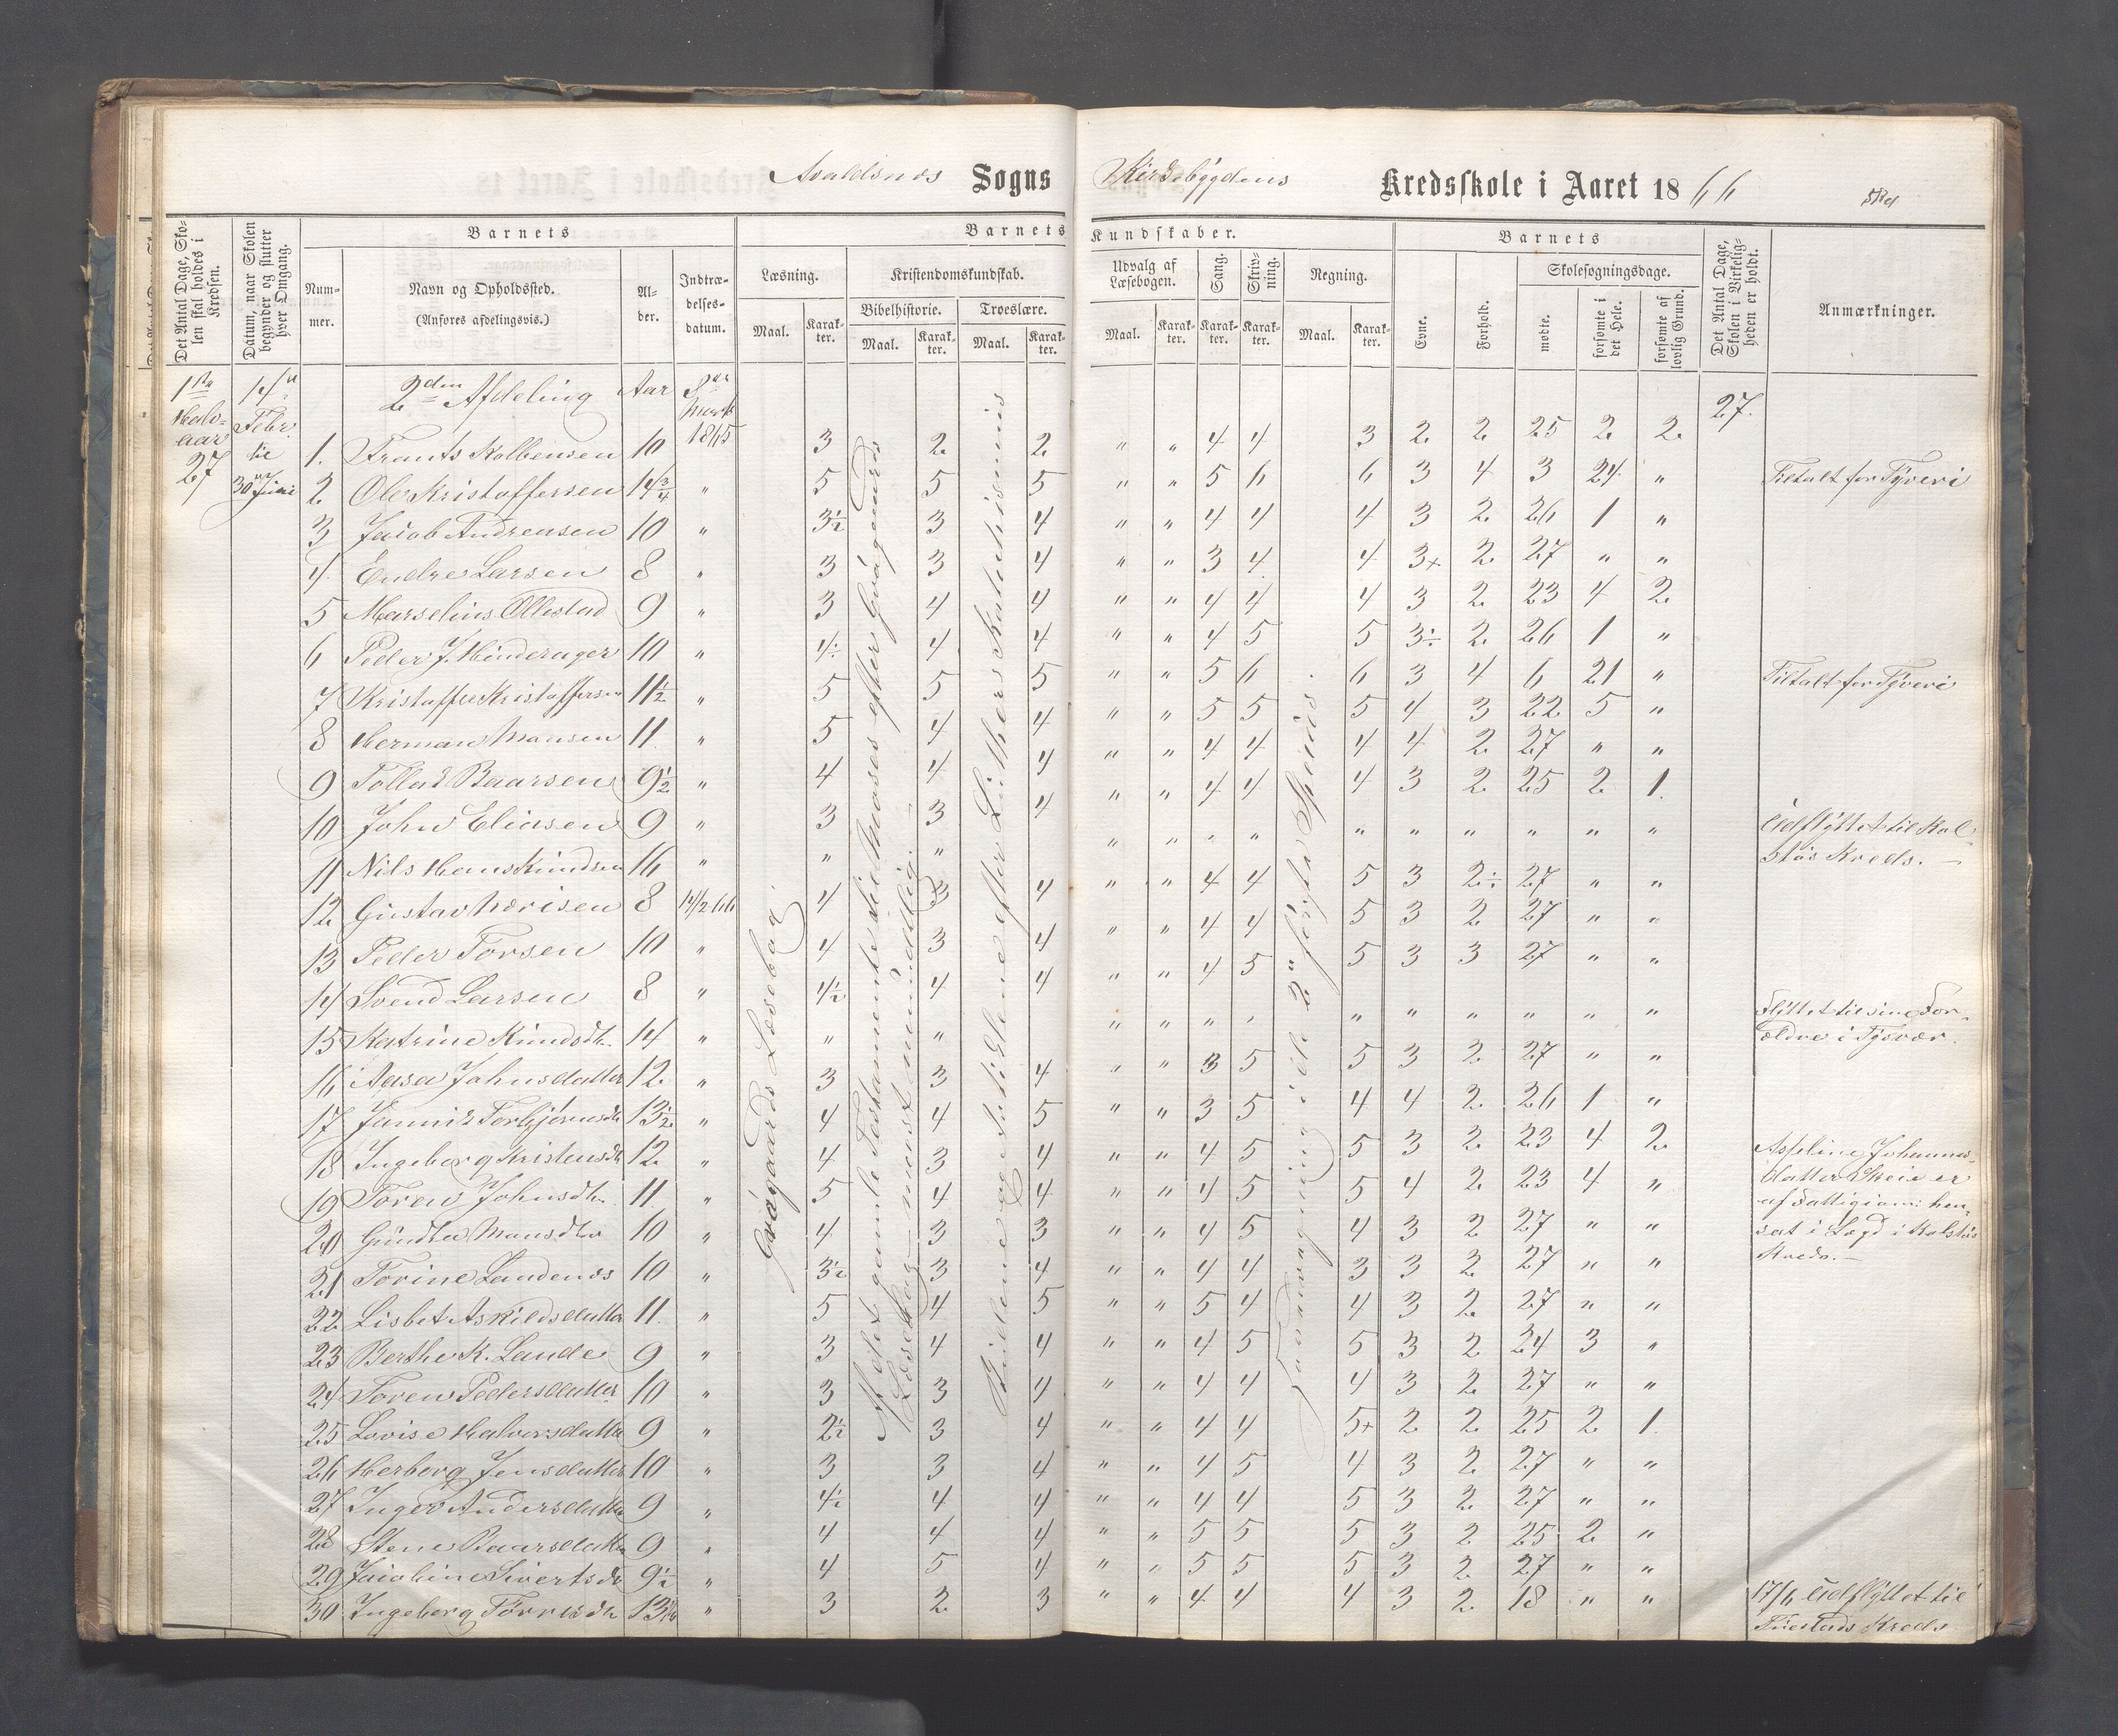 Avaldsnes Sogns Kirkebygdens Kredsskole i Aaret 1866
Det Antal Dage, Skolen skal holdes i Kredsen.
Datum, naar Skolen begynder og slutter hver Omgang.
Barnets
Nummer.
Navn og Opholdssted.
(Anføres afdelingsvis.)
Alder.
Indtrædelsesdatum.
Barnets Kundskaber.
Læsning.
Maal. Karakter.
Kristendomskundskab.
Bibelhistorie.
Maal. Karakter.
Troeslære.
Maal. Karakter.
Udvalg af Læsebogen.
Maal. Karakter.
Sang. Karakter.
Skrivning. Karakter.
Regning.
Maal. Karakter.
Barnets
Evne. Forhold.
Skolesøgningsdage.
mødte. forsømte i det Hele. forsømte af lovlig Grund.
Det Antal Dage, Skolen i Virkeligheden er holdt.
Anmærkninger.
1ste Halvaar 27
Febr. til 30 Juni
2den Afdeling Aar
27.
1. 10 1865 3 2 2 " " 4 4 3 2 2 25 2 2
2 Ole Kristoffersen 14 3/4 " 5 5 5 " " 5 6 6 3 4 3 24 " Tiltalt for Tyveri
3 Jacob Andreasen 10 " 3½ 3 4 " " 4 4 4 3 2 26 1 "
4 Endre Larsen 8 " 3 3 4 " " 3 4 4 3+ 2 27 " "
5 Marselius Ollestad 9 " 3 4 4 " " 4 4 4 3 2 23 4 2
6 Peder J. Hinderager 10 " 4÷ 4 4 " " 4 5 5 3÷ 2 26 1 "
7 Kristoffer Kristoffersen 11½ " 5 5 5 " " 5 6 6 3 4 6 21 " Tiltalt for Tyveri
8 Herman Monsen 11 " 5 4 4 " " 5 5 5 4 3 22 5 "
9 Tollak Baarsen 9½ " 4 4 4 " " 4 4 4 4 2 27 " "
10 John Eliasen 9 " 3 3 4 " " 4 4 4 3 2 25 2 1
11 Nils Hans Knudsen 16 " " " " " " " " " " " " " Udflyttet til Kolstøs Kreds.
12 Gustav 8 14/2 66 4 3 4 " " 4 4 5 3 2÷ 27 " "
13 Peder Torsen 10 " 4 3 4 " " 4 4 5 3 2 27 " "
14 Svend Larsen 8 " 4½ 4 4 " " 4 5 5 3 3 27 " "
15 Katrine Knudsdtr. 14 " " " " " " " " " " " " " Flyttet til sine Forældre i Tysvær.
16 Aasa Johnsdatter 12 " 3 3 4 " " 3 5 5 3 2 27 " "
17 Torbjørnsdtr 13½ " 4 4 5 " " 3 5 4 4 2 26 1 "
18 Ingeborg Kristensdtr 12 " 4 3 4 " " 4 5 5 3 2 23 4 2
19 Toren Johnsdtr. 11 " 5 4 4 " " 4 5 5 4 2 23 4 "
20 Gundla Monsdtr 10 " 4 3 3 " " 4 5 4 3 2 27 " "
21 Torine Landenes 10 " 3½ 3 4 " " 4 4 3 3 2 27 " "
22 Lisbet Askildsdatter 11 " 5 4 5 " " 5 4 4 3 2 27 " "
23 Berthe K. Lande 9 " 3 4 4 " " 4 5 5 3 2 24 3 "
24 Toren Pedersdatter 10 " 3 3 4 " " 4 4 4 3 2 27 " "
25 Lovise Halvorsdatter 9 " 2½ 3 4 " " 4 4 5+ 2 2 25 2 1
26 Herborg Jensdatter 10 " 3 3 4 " " 4 5 4 3 2 27 " "
27 Inger Andersdatter 9 " 4½ 4 4 " " 4 4 5 3 2 27 " "
28 Stene Baarsdatter 9 " 4 4 4 " " 5 5 5 3 2 25 2 "
29 Jacobine Sivertsdtr 9½ " 4 5 4 " " 5 5 5 3 2 27 " "
30 Ingeborg Torrisdtr 13 " 3 2 3 " " 4 4 4 3 2 18 " " 17/6 Udflyttet til Kreds
Datter Skeie er
af Fattigcom: hensat i Lægd i Kolstøs
Kreds.
Gvågaards Læsebog
Af det gamle Testamente til Moses efter Gvågaards
Læsebog mest mundtlig.
efter Luthers Katekismus